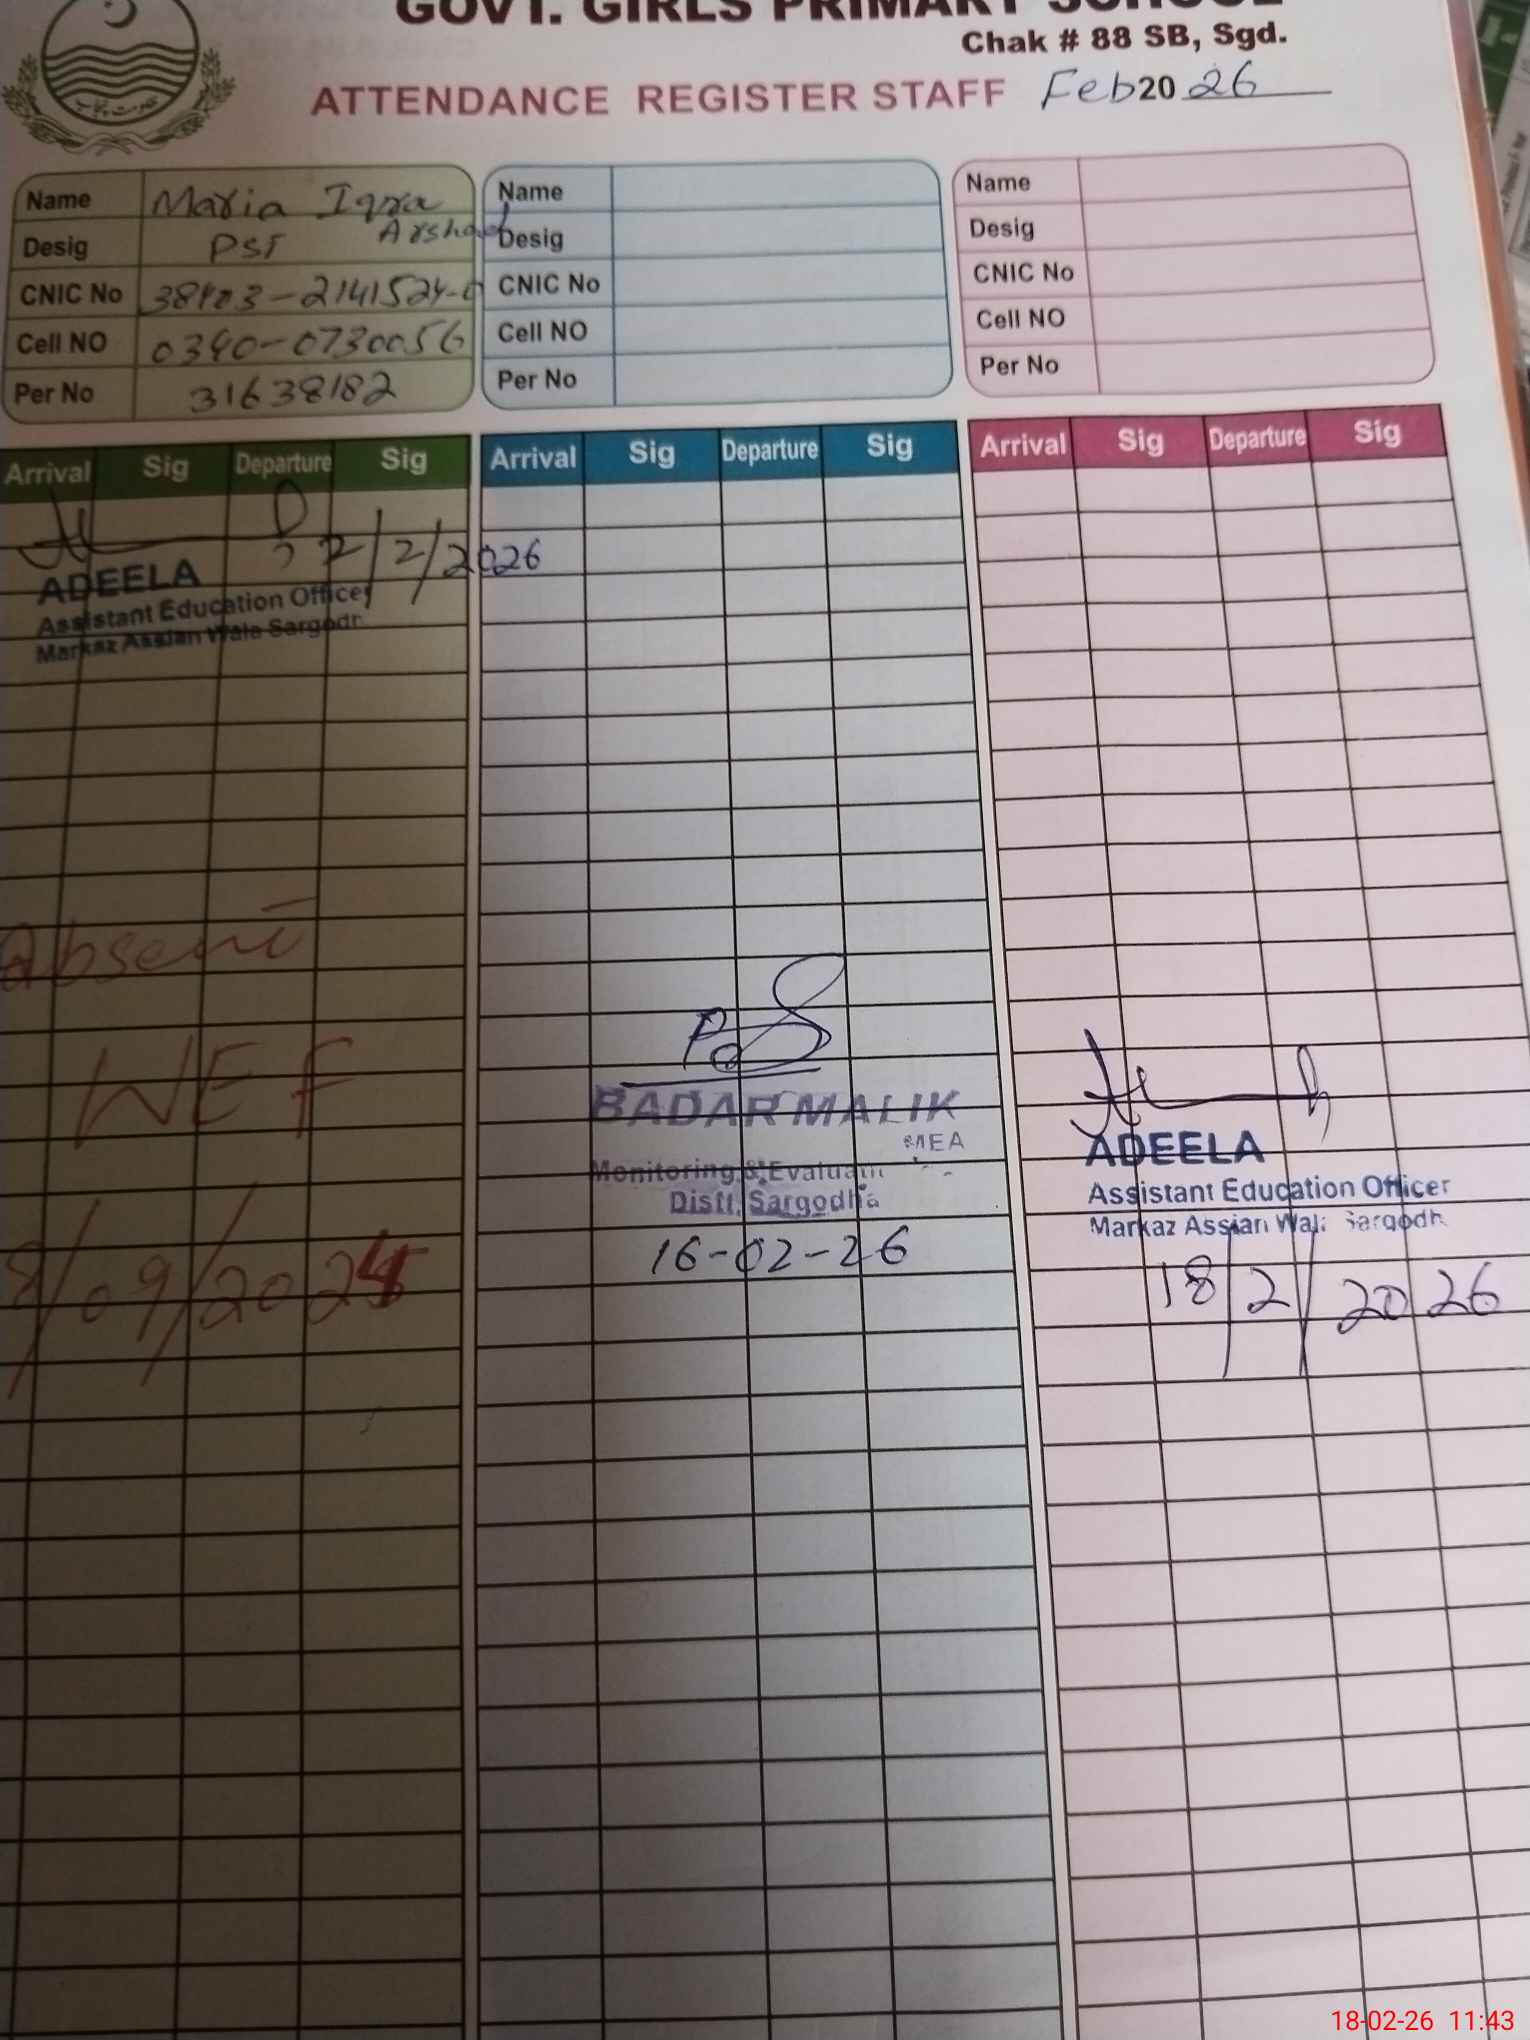 GOVT. GIRLS PRIMARY SCHOOL
Chak # 88 SB, Sgd.
ATTENDANCE REGISTER STAFF Feb 2026
Name Maria Iqra Arshad
Desig PST
CNIC No 38403-2141524-0
Cell NO 0340-0730056
Per No 31638182
Name
Desig
CNIC No
Cell NO
Per No
Name
Desig
CNIC No
Cell NO
Per No
Arrival Sig Departure Sig
Arrival Sig Departure Sig
Arrival Sig Departure Sig
2/2/2026
ADEELA
Assistant Education Officer
Markaz Assian Wala Sargodh
Absent
WEF
/09/202
BADAR MALIK
MEA
Monitoring & Evaluati
Distt. Sargodha
16-02-26
ADEELA
Assistant Education Officer
Markaz Assian Wala Sargodh
18/2/2026
18-02-26 11:43